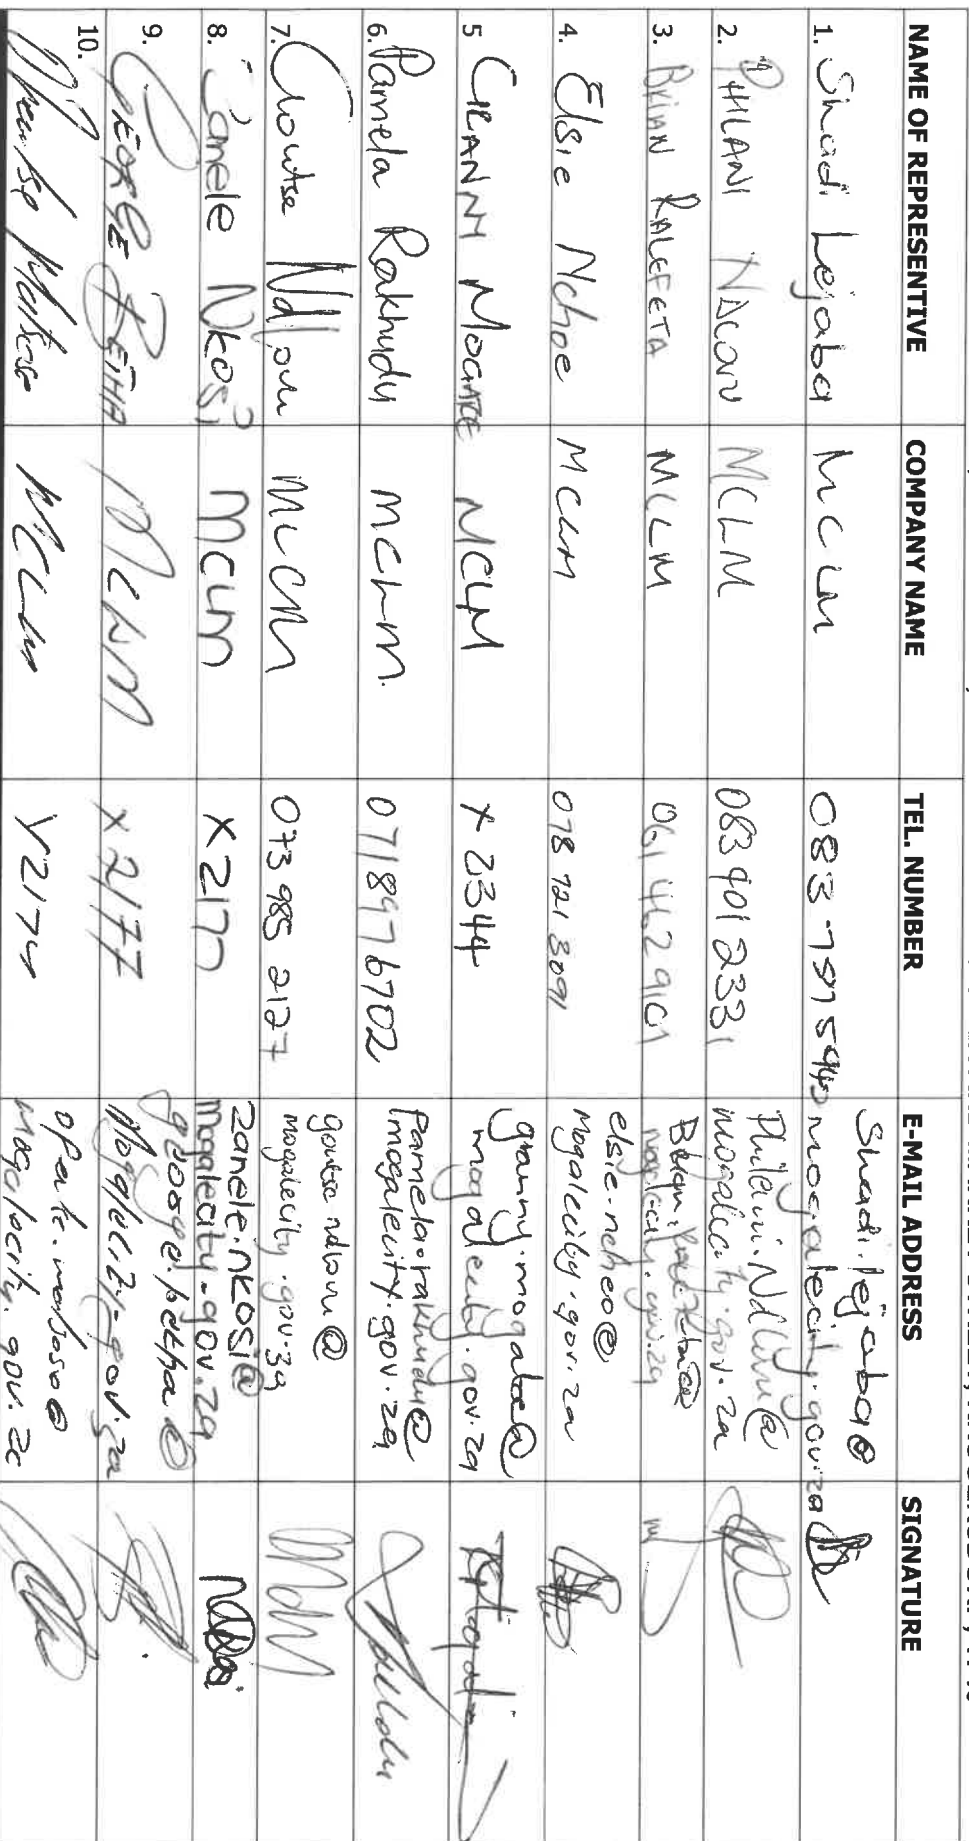 NAME OF REPRESENTIVE COMPANY NAME TEL. NUMBER E-MAIL ADDRESS SIGNATURE
1. Shadi Lejaba MCLM 083 7975940 Shadi.lejaba@
mogalecity.gov.za
2. PHILANI NDLOVU MCLM 083 901 2331 Philani.Ndlovu@
mogalecity.gov.za
3. BRIAN RALEFETA MCLM 061 462 9109
mogalecity.gov.za
4. Elsie Nchoe MCLM 078 721 3091 elsie.nchoe@
mogalecity.gov.za
5 GRANNY MOGATE MCLM X 2344 granny.mogate@
mogalecity.gov.za
6. Pamela Rakhudu MCLM. 0718976702 Pamela.rakhudu@
mogalecity.gov.za
7. Goutse Ndlovu MLCM 073 985 2127 goutse.ndlovu@
mogalecity.gov.za
8. Zanele Nkosi MCLM X2177 zanele.nkosi@
mogalecity.gov.za
9. GEORGE BETHA MCLM X 2177 george.betha@
mogalecity.gov.za
10. MCLM
mogalecity.gov.za